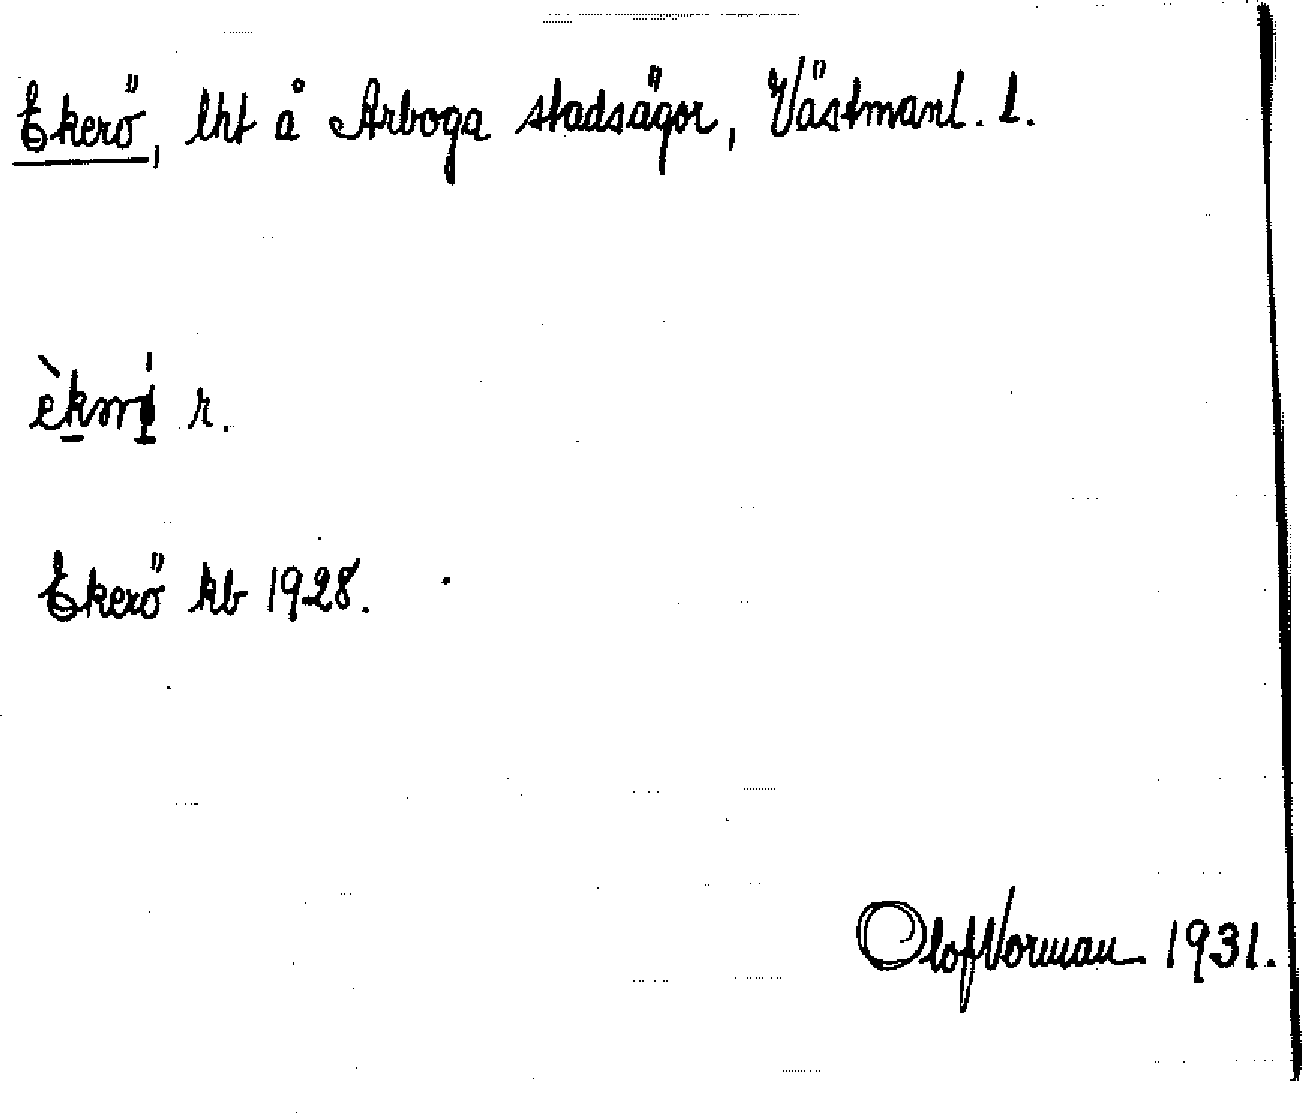 Ekerö, lht å Arboga stadsägor, Västmanl. l.
r.
Ekerö kb 1928.
Olof Norman 1931.